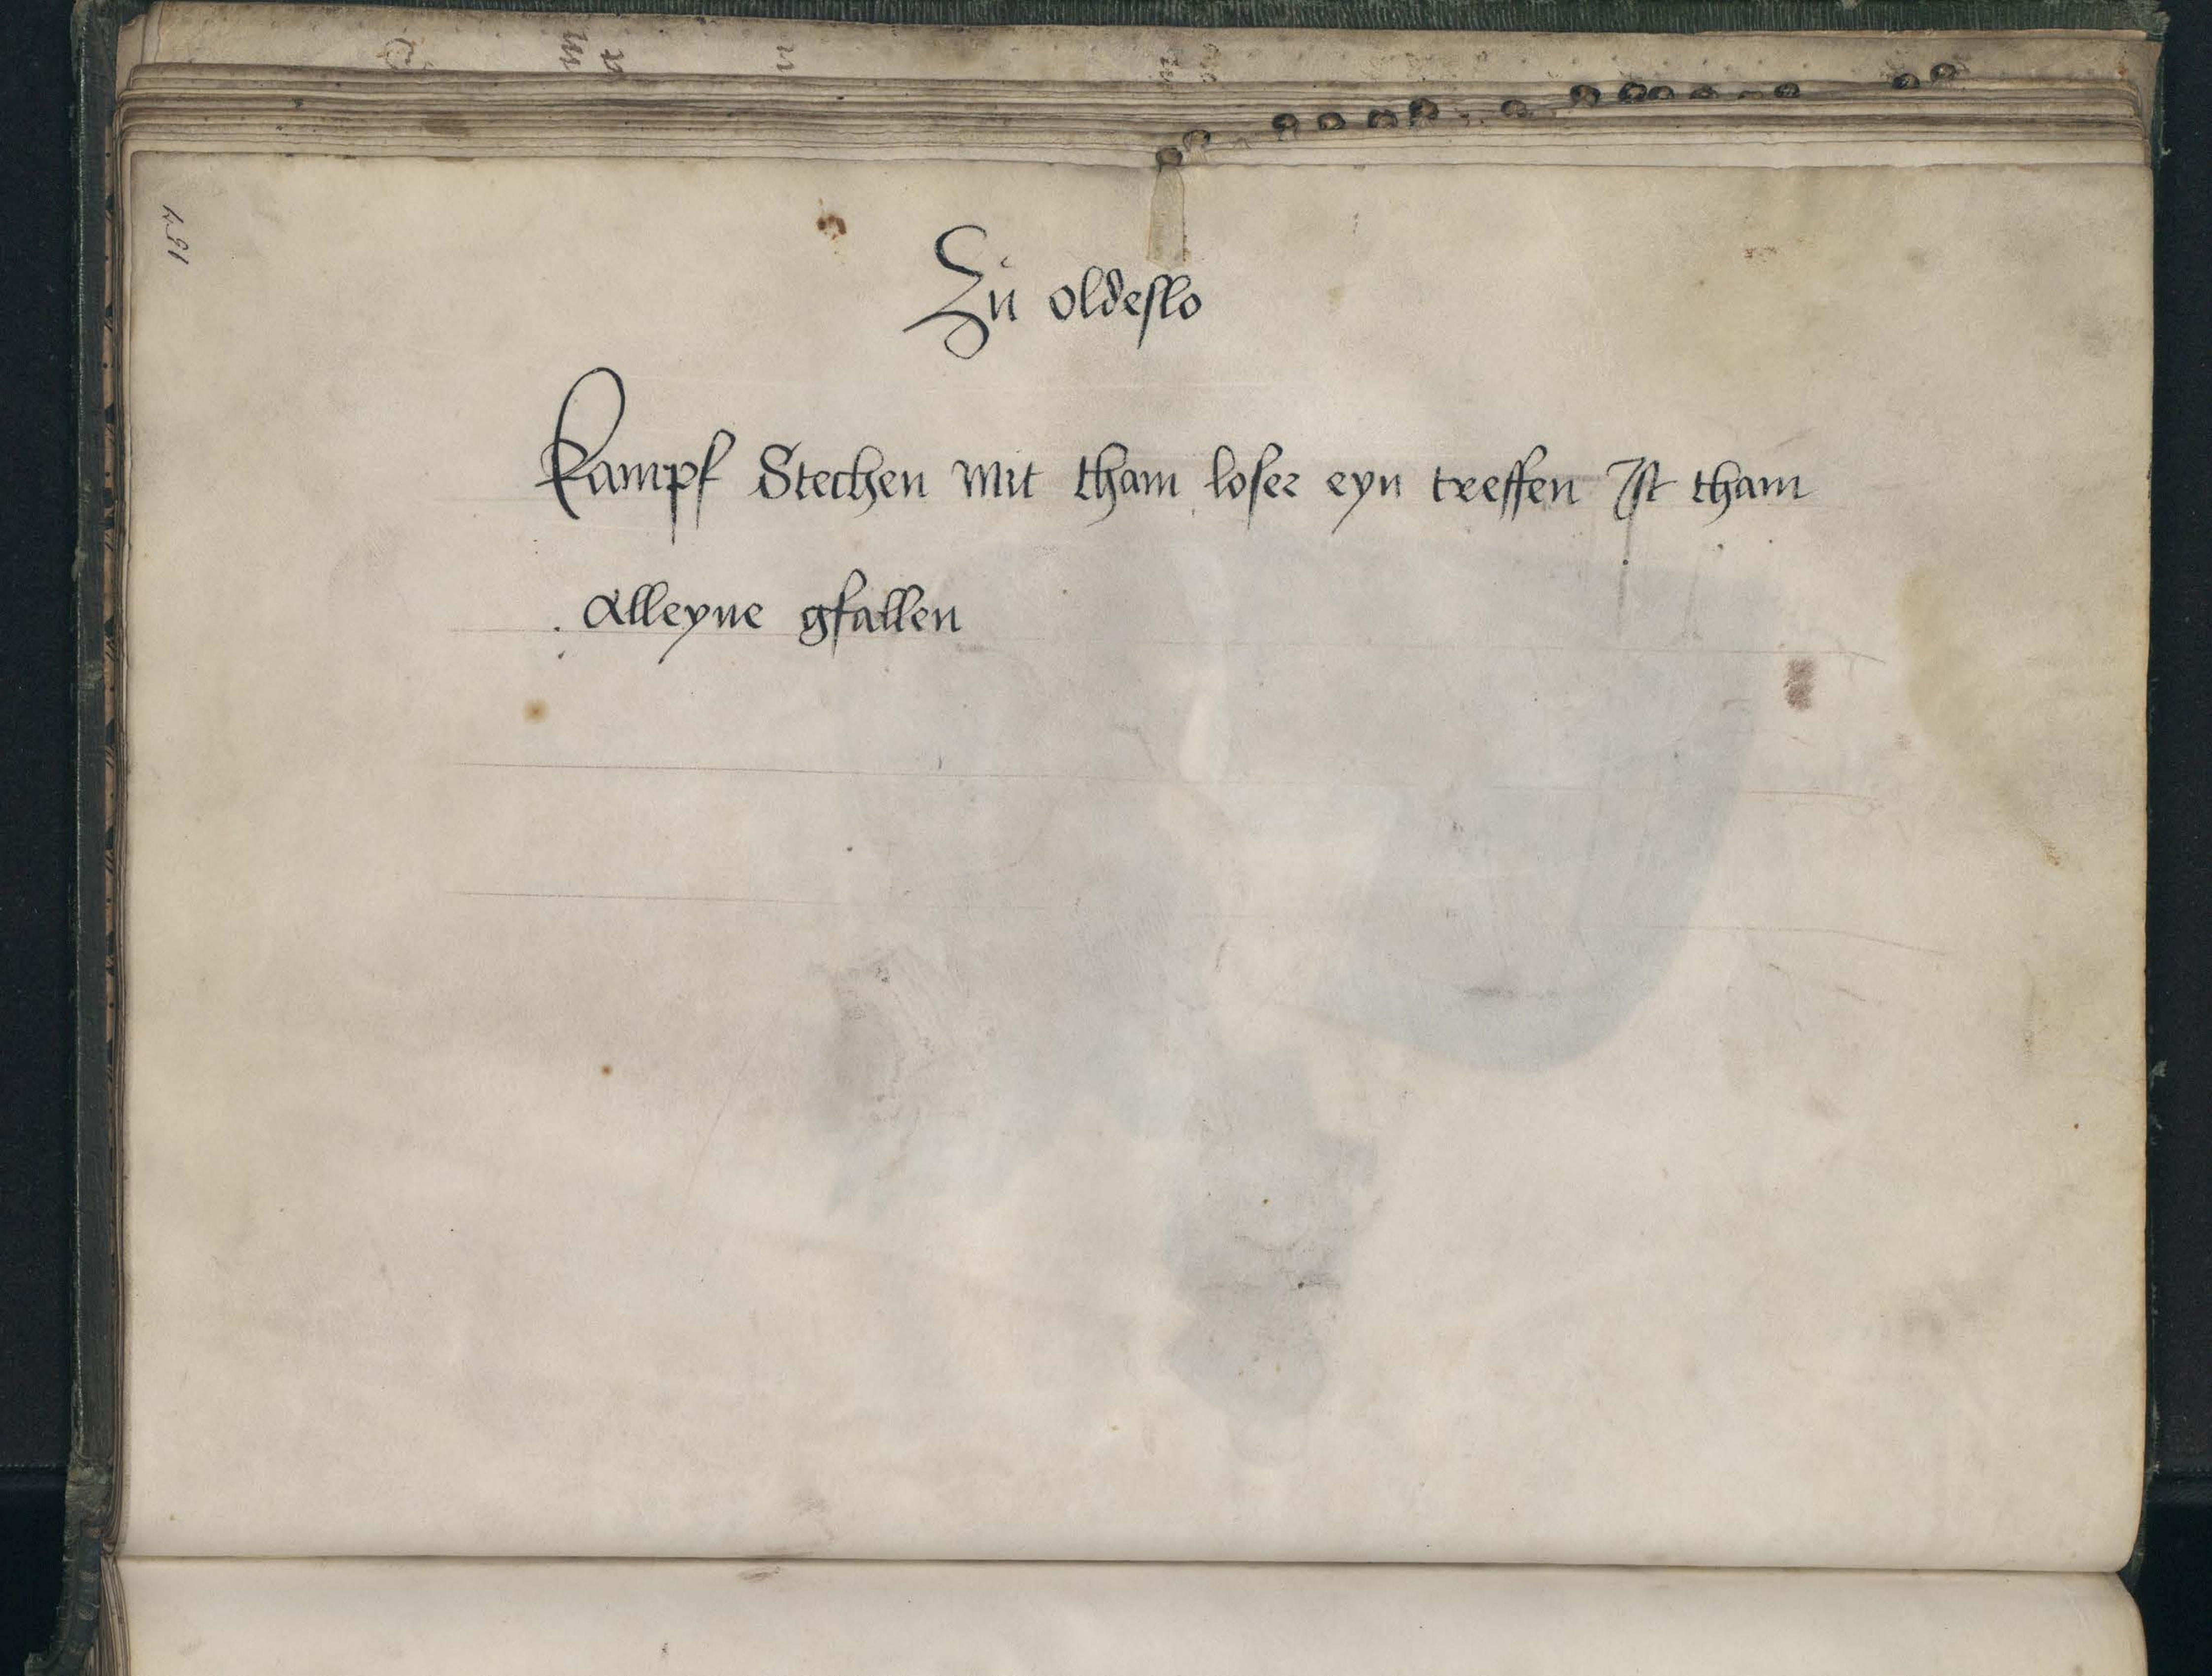 Zu oldeslo
Kampf Stechen Mit tham loser eyn treffen Ist tham
Alleyne gfallen